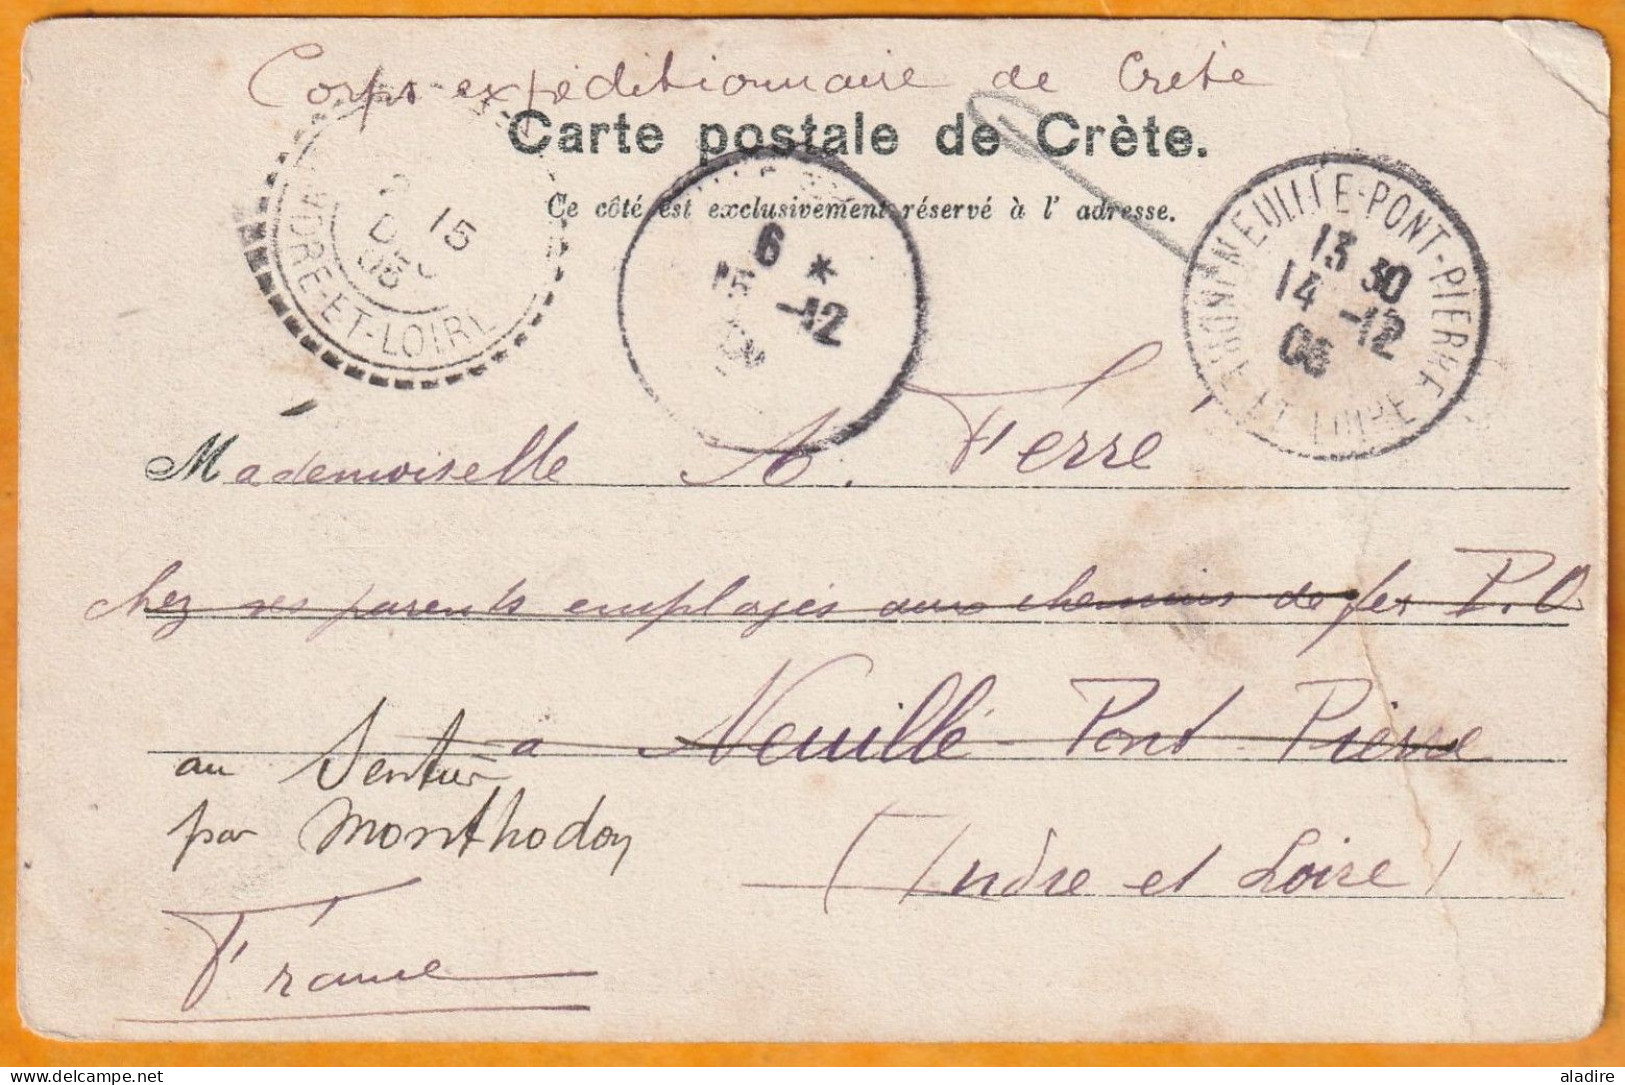 Corps expéditionnaire de Crète
Carte postale de Crète.
Ce côté est exclusivement réservé à l' adresse.
15
DEC
05
INDRE-ET-LOIRE
6 *
15 -12
NEUILLE-PONT-PIERRE
13 30
14 -12
05
INDRE ET LOIRE
Mademoiselle A. Ferré
chez ses parents employés aux chemins de fer P.O
à Neuillé-Pont-Pierre
au Sentier
par Monthodon
(Indre et Loire)
France
aladire
delcampe.net